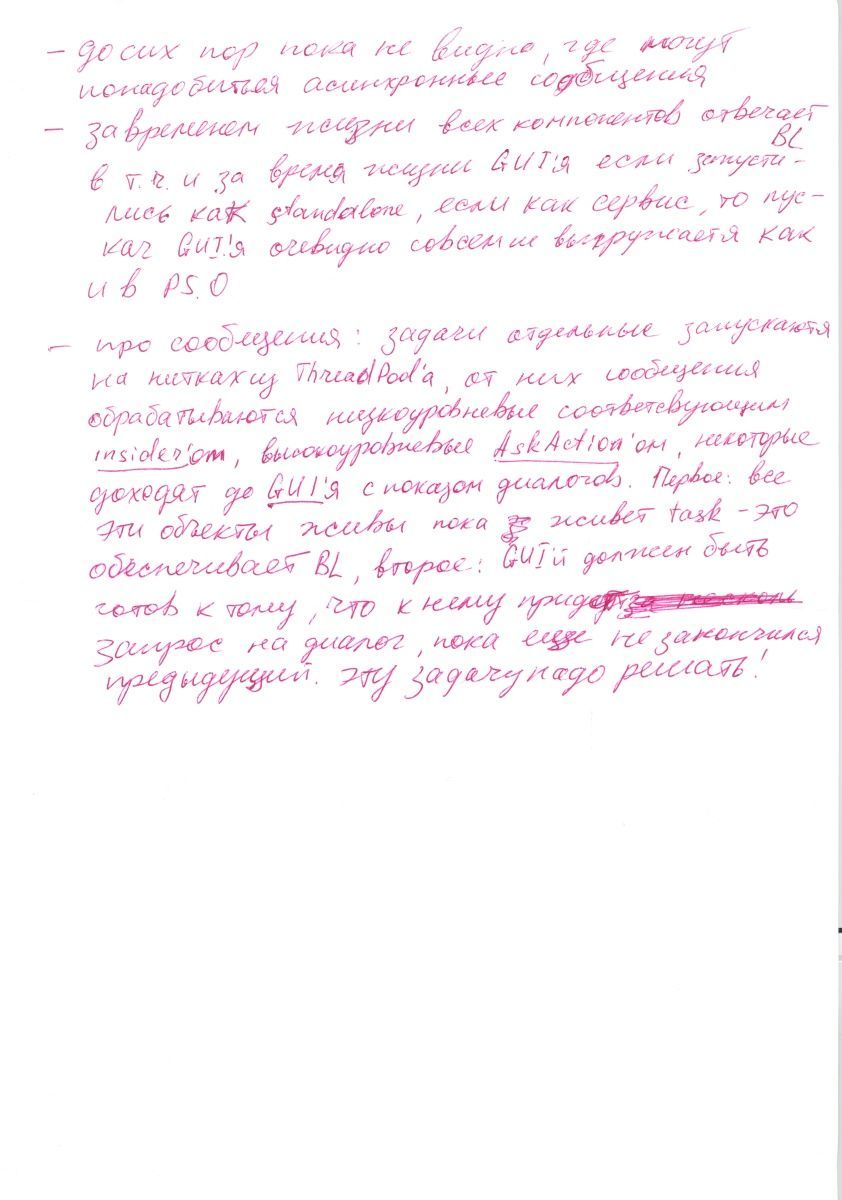 – до сих пор пока не видно, где могут
понадобиться асинхронные сообщения
– за временем жизни всех компонентов отвечает
BL
в т.ч. и за время жизни GUI'я если запусти-
лись как standalone, если как сервис, то пус-
кач GUI'я очевидно совсем не выгружается как
и в PS.0
– про сообщения: задачи отдельные запускаются
на нитках из ThreadPool'а, от них сообщения
обрабатываются низкоуровневые соответсвующим
insider'ом, высокоуровневые AskAction'ом, некоторые
доходят до GUI'я с показом диалогов. Первое: все
эти объекты живы пока живет task – это
обеспечивает BL, второе: GUI'й должен быть
готов к тому, что к нему придет
запрос на диалог, пока еще не закончился
предыдущий. Эту задачу надо решать!